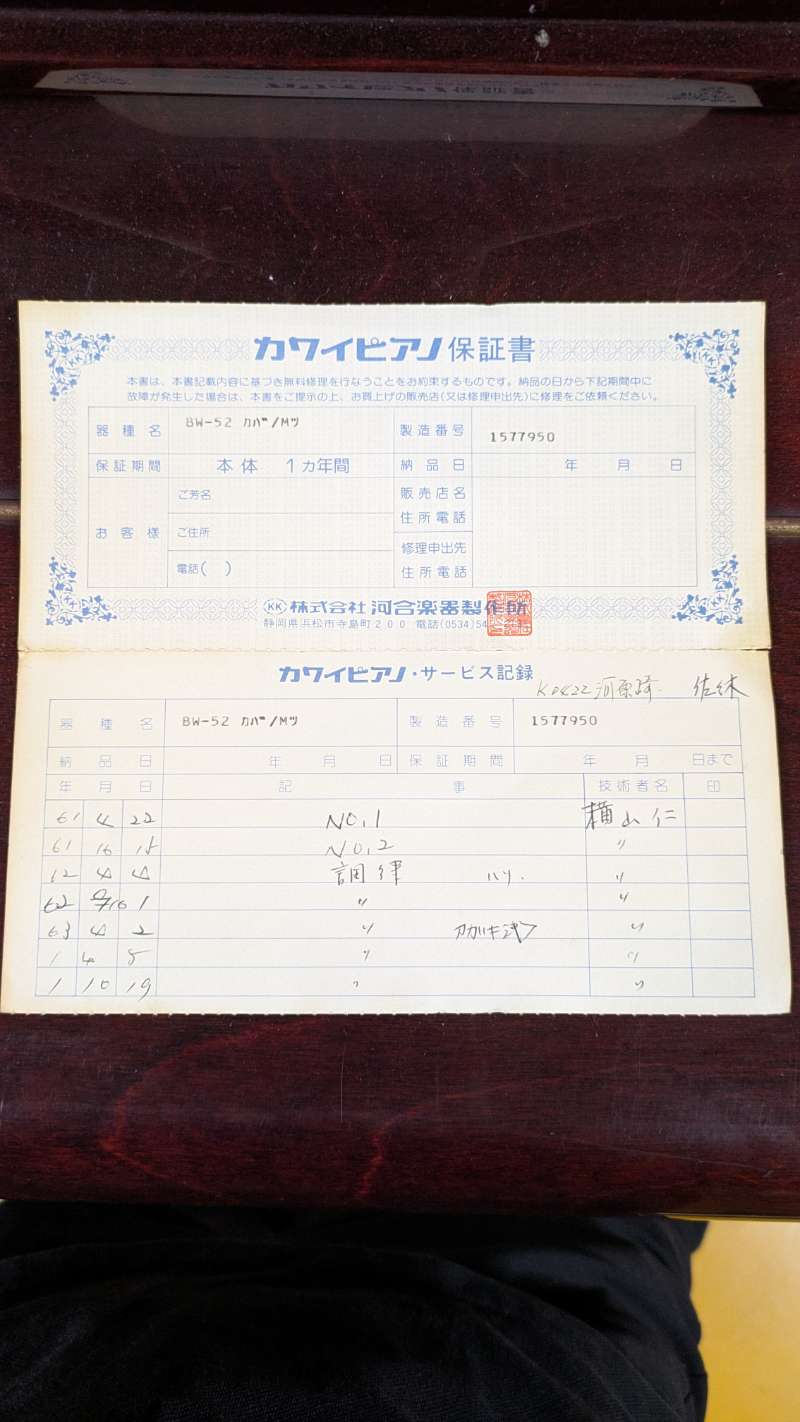 カワイピアノ保証書
本書は、本書記載内容に基づき無料修理を行なうことをお約束するものです。納品の日から下記期間中に
故障が発生した場合は、本書をご提示の上、お買上げの販売店(又は修理申出先)に修理をご依頼ください。
器種名 BW-52 カバ/Mツ 製造番号 1577950
保証期間 本体 1カ年間 納品日 年 月 日
お客様 ご芳名 販売店名
住所電話
ご住所
修理申出先
電話( ) 住所電話
KK 株式会社 河合楽器製作所
静岡県浜松市寺島町200 電話(0534)54
カワイピアノ・サービス記録
器種名 BW-52 カバ/Mツ 製造番号 1577950
納品日 年 月 日 保証期間 年 月 日まで
年 月 日 記事 技術者名 印
61 4 22 NO.1 横山仁
61 10 15 NO.2 〃
12 4 4 調律 ハリ. 〃
62 10 1 〃 〃
63 4 2 〃 〃
1 4 5 〃 〃
1 10 19 〃 〃